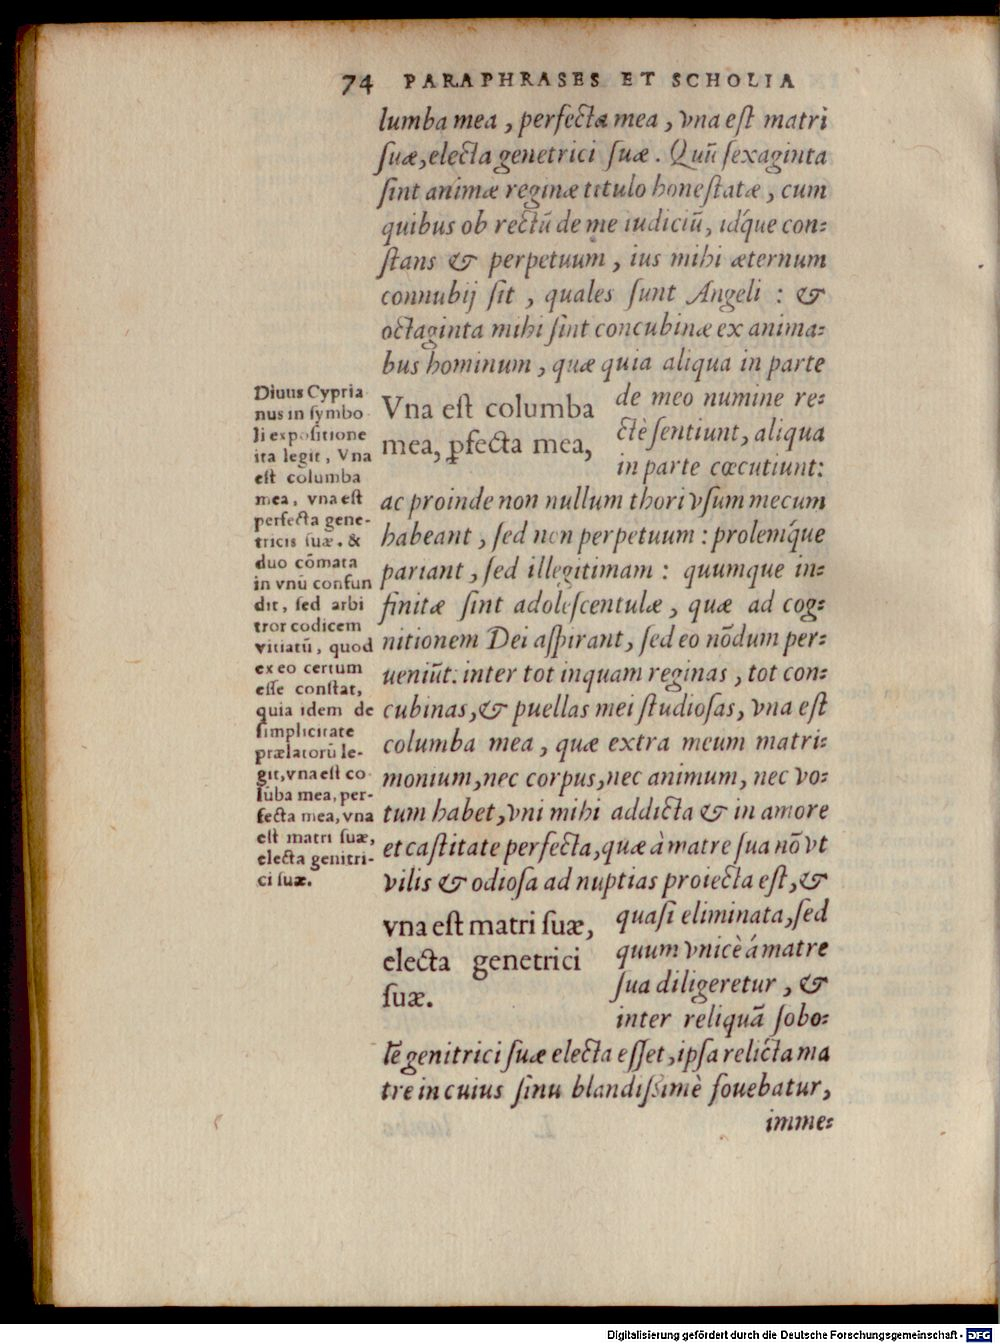 74 PARAPHRASES ET SCHOLIA
lumba mea, perfecta mea, vna eſt matri
ſuæ, electa genetrici ſuæ. Quũ ſexaginta
ſint animæ reginæ titulo honeſtatæ, cum
quibus ob rectũ de me iudiciũ, idq́ue con:
ſtans & perpetuum, ius mihi æternum
connubij ſit, quales ſunt Angeli: &
octaginta mihi ſint concubinæ ex anima:
bus hominum, quæ quia aliqua in parte
de meo numine re:
ctè ſentiunt, aliqua
in parte cœcutiunt:
Vna eſt columba
mea, ꝑfecta mea,
ac proinde non nullum thori vſum mecum
habeant, ſed non perpetuum: prolemq́ue
pariant, ſed illegitimam: quumque in:
finitæ ſint adoleſcentulæ, quæ ad cog:
nitionem Dei aſpirant, ſed eo nõdum per:
ueniũt: inter tot inquam reginas, tot con:
cubinas, & puellas mei ſtudioſas, vna eſt
columba mea, quæ extra meum matri:
monium, nec corpus, nec animum, nec vo:
tum habet, vni mihi addicta & in amore
et caſtitate perfecta, quæ à matre ſua nõ vt
vilis & odioſa ad nuptias proiecta eſt, &
quaſi eliminata, ſed
quum vnicè á matre
ſua diligeretur, &
inter reliquã ſobo:
vna eſt matri ſuæ,
electa genetrici
ſuæ.
lẽ genitrici ſuæ electa eſſet, ipſa relicta ma
tre in cuius ſinu blandiſſimè fouebatur,
imme:
Diuus Cypria
nus in ſymbo
li expoſitione
ita legit, Vna
eſt columba
mea, vna eſt
perfecta gene-
tricis ſuæ. &
duo cõmata
in vnũ confun
dit, ſed arbi
tror codicem
vitiatũ, quod
ex eo certum
eſſe conſtat,
quia idem de
ſimplicitate
prælatorũ le-
git, vna eſt co
lũba mea, per-
fecta mea, vna
eſt matri ſuæ,
electa genitri-
ci ſuæ.
Digitalisierung gefördert durch die Deutsche Forschungsgemeinschaft - DFG